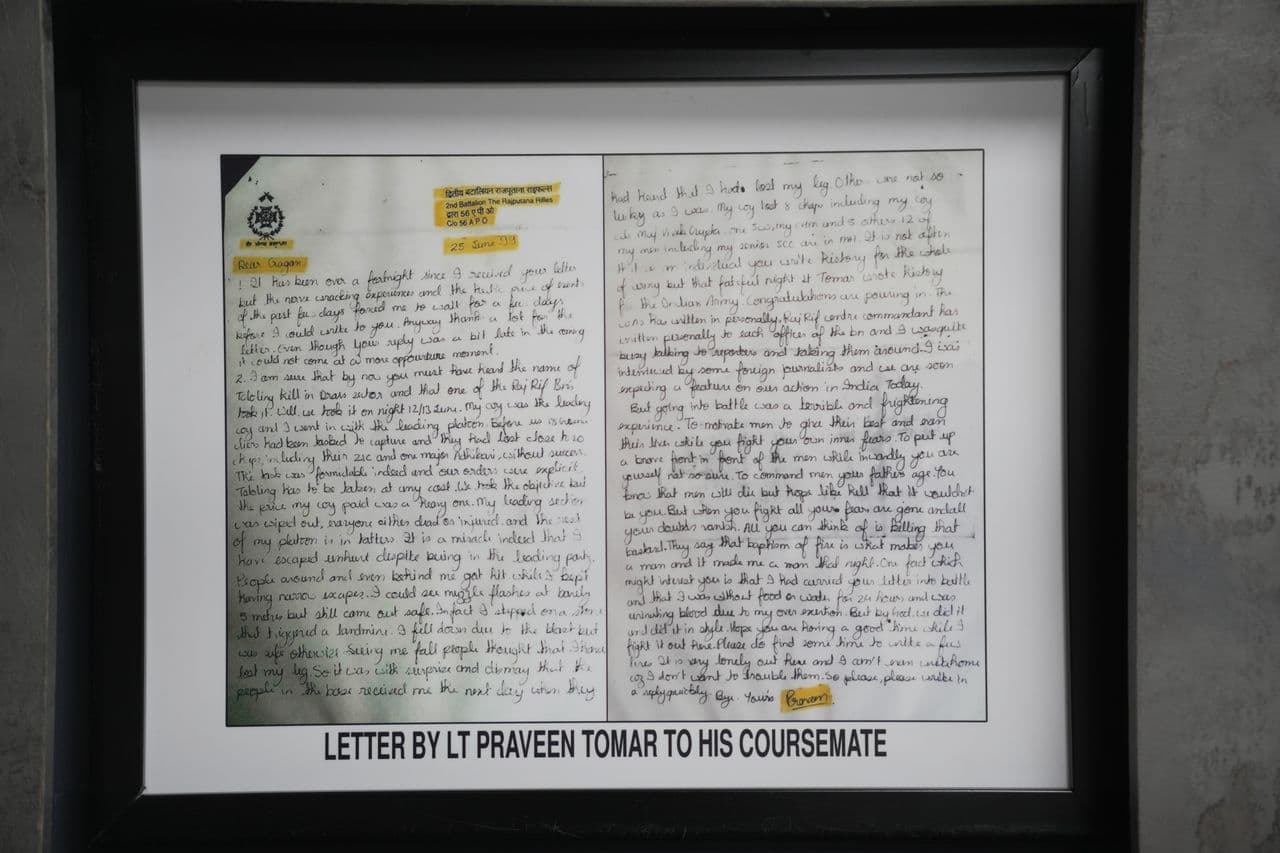 द्वितीय बटालियन राजपूताना राइफल्स
2nd Battalion The Rajputana Rifles
द्वारा 56 ए पी ओ
C/o 56 A P O
25 June '99
Dear Gagan
! It has been over a fortnight since I received your letter
but the nerve wracking experiences and the hectic pace of events
of the past few days forced me to wait for a few days
before I could write to you. Anyway thanks a lot for the
letter. Even though your reply was a bit late in the coming
it could not come at a more opportune moment.
2. I am sure that by now you must have heard the name of
Tololing hill in Drass sector and that one of the Raj Rif Bns
took it. Well, we took it on night 12/13 June. My coy was the leading
coy and I went in with the leading platoon. Before us
had been tasked to capture and they had lost close to
chaps, including their 2ic and one major Adhikari, without success.
The task was formidable indeed and our orders were explicit.
Tololing has to be taken at any cost. We took the objective but
the price my coy paid was a heavy one. My leading section
was wiped out, everyone either dead or injured. and the rest
of my platoon is in tatters. It is a miracle indeed that I
have escaped unhurt despite being in the leading party.
People around and even behind me got hit while I kept
having narrow escapes. I could see muzzle flashes at barely
5 metres but still came out safe. Infact I stepped on a stone
that triggered a landmine. I fell down due to the blast but
was safe otherwise. Seeing me fall people thought that I have
lost my leg. So it was with surprise and dismay that the
people in the base received me the next day when they
had heard that I had lost my leg. Others were not so
lucky as I was. My coy lost 8 chaps including my coy
cdr Maj Vivek Gupta, one and 5 others 12 of
my men including my senior are in It is not often
that as an individual you write history for the whole
of army but that fateful night Lt Tomar wrote history
for the Indian Army. Congratulations are pouring in. The
has written in personally. Raj Rif centre commandant has
written personally to each officer of the bn and I was quite
busy talking to reporters and taking them around. I was
interviewed by some foreign journalists and we are soon
expecting a feature on our action in India Today.
But going into battle was a terrible and frightening
experience. To motivate men to give their best and even
their lives while you fight your own inner fears. To put up
a brave front in front of the men while inwardly you are
yourself not so sure. To command men your fathers age. You
know that men will die but hope like hell that it wouldnt
be you. But when you fight all your fears are gone and all
your doubts vanish. All you can think of is killing that
bastard. They say that baptism of fire is what makes you
a man and it made me a man that night. One fact which
might interest you is that I had carried your letter into battle
and that I was without food or water for 24 hours and was
urinating blood due to my over exertion. But by God, we did it
and did it in style. Hope you are having a good time while I
fight it out here. Please do find some time to write a few
lines. It is very lonely out here and I can't even write home
coz I don't want to trouble them. So please, please write in
a reply quickly. Bye. Yours Praveen
LETTER BY LT PRAVEEN TOMAR TO HIS COURSEMATE